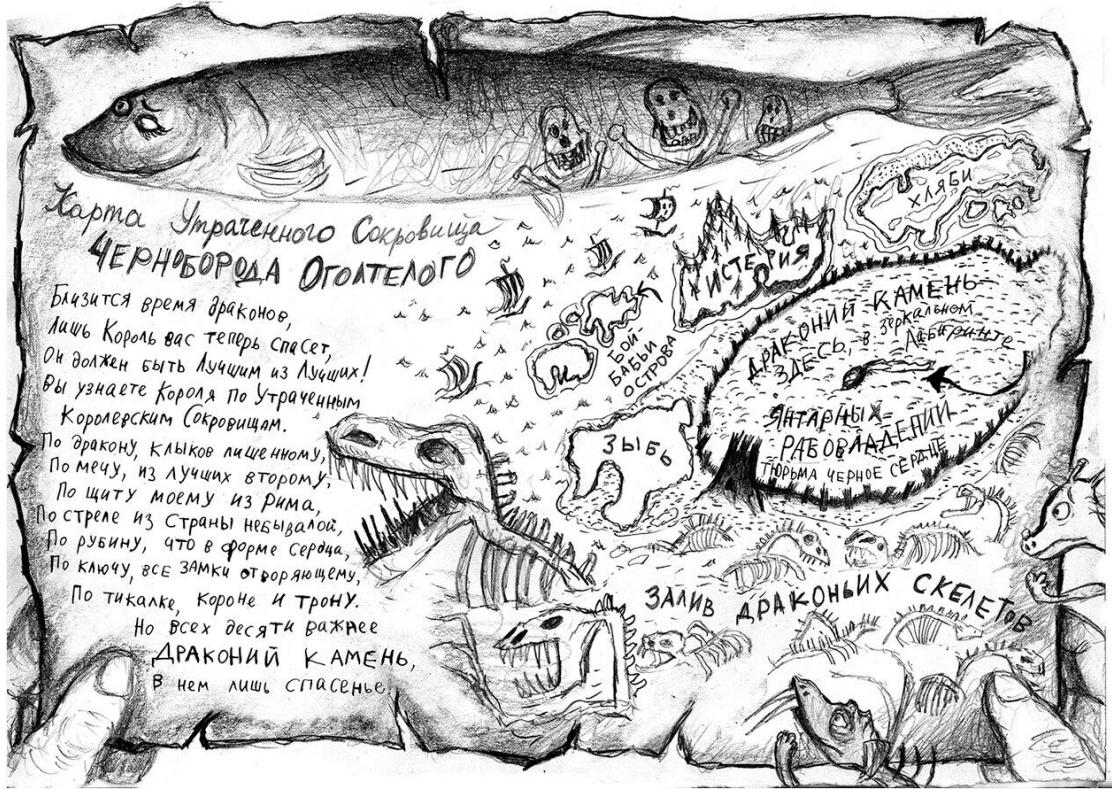 Карта Утраченного Сокровища
ЧЕРНОБОРОДА ОГОЛТЕЛОГО
Близится время драконов,
Лишь Король вас теперь спасет,
Он должен быть Лучшим из Лучших!
Вы узнаете Короля по Утраченным
Королевским Сокровищам.
По дракону, клыков лишенному,
По мечу, из лучших второму,
По щиту моему из Рима,
По стреле из Страны небывалой,
По рубину, что в форме сердца,
По ключу, все замки отворяющему,
По тикалке, короне и трону.
Но всех десяти важнее
ДРАКОНИЙ КАМЕНЬ,
в нем лишь спасенье
ХЛЯБИ
ИСТЕРИЯ
БОЙ
БАБЬИ
ОСТРОВА
ЗЫБЬ
ДРАКОНИЙ КАМЕНЬ
ЗДЕСЬ, в зеркальном
Лабиринте
ЯНТАРНЫХ
РАБОВЛАДЕНИЙ
ТЮРЬМА ЧЕРНОЕ СЕРДЦЕ
ЗАЛИВ ДРАКОНЬИХ СКЕЛЕТОВ